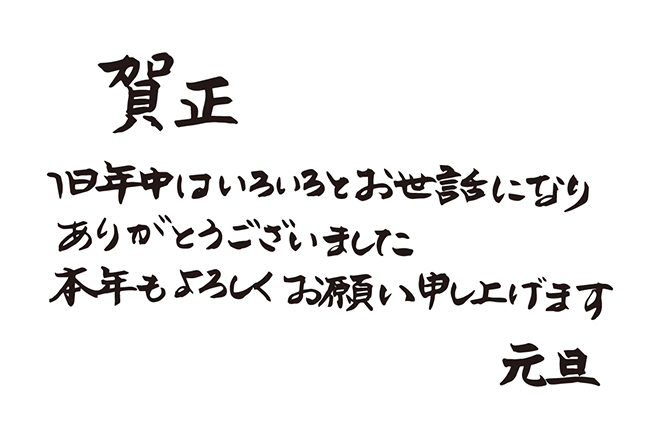 賀正
旧年中はいろいろとお世話になり
ありがとうございました
本年もよろしくお願い申し上げます
元旦